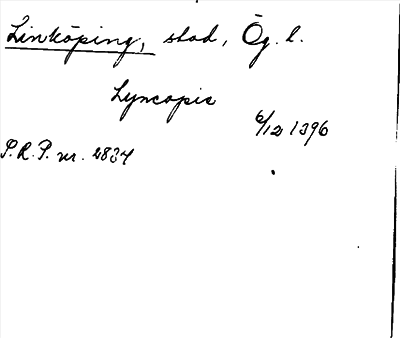 Linköping, stad, Ög. l.
Lyncopie
6/12 1396
P.R.P. nr. 2834